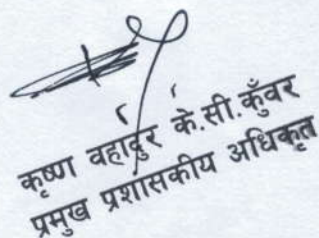 कृष्ण वहादुर के.सी.कुँवर
प्रमुख प्रशासकीय अधिकृत